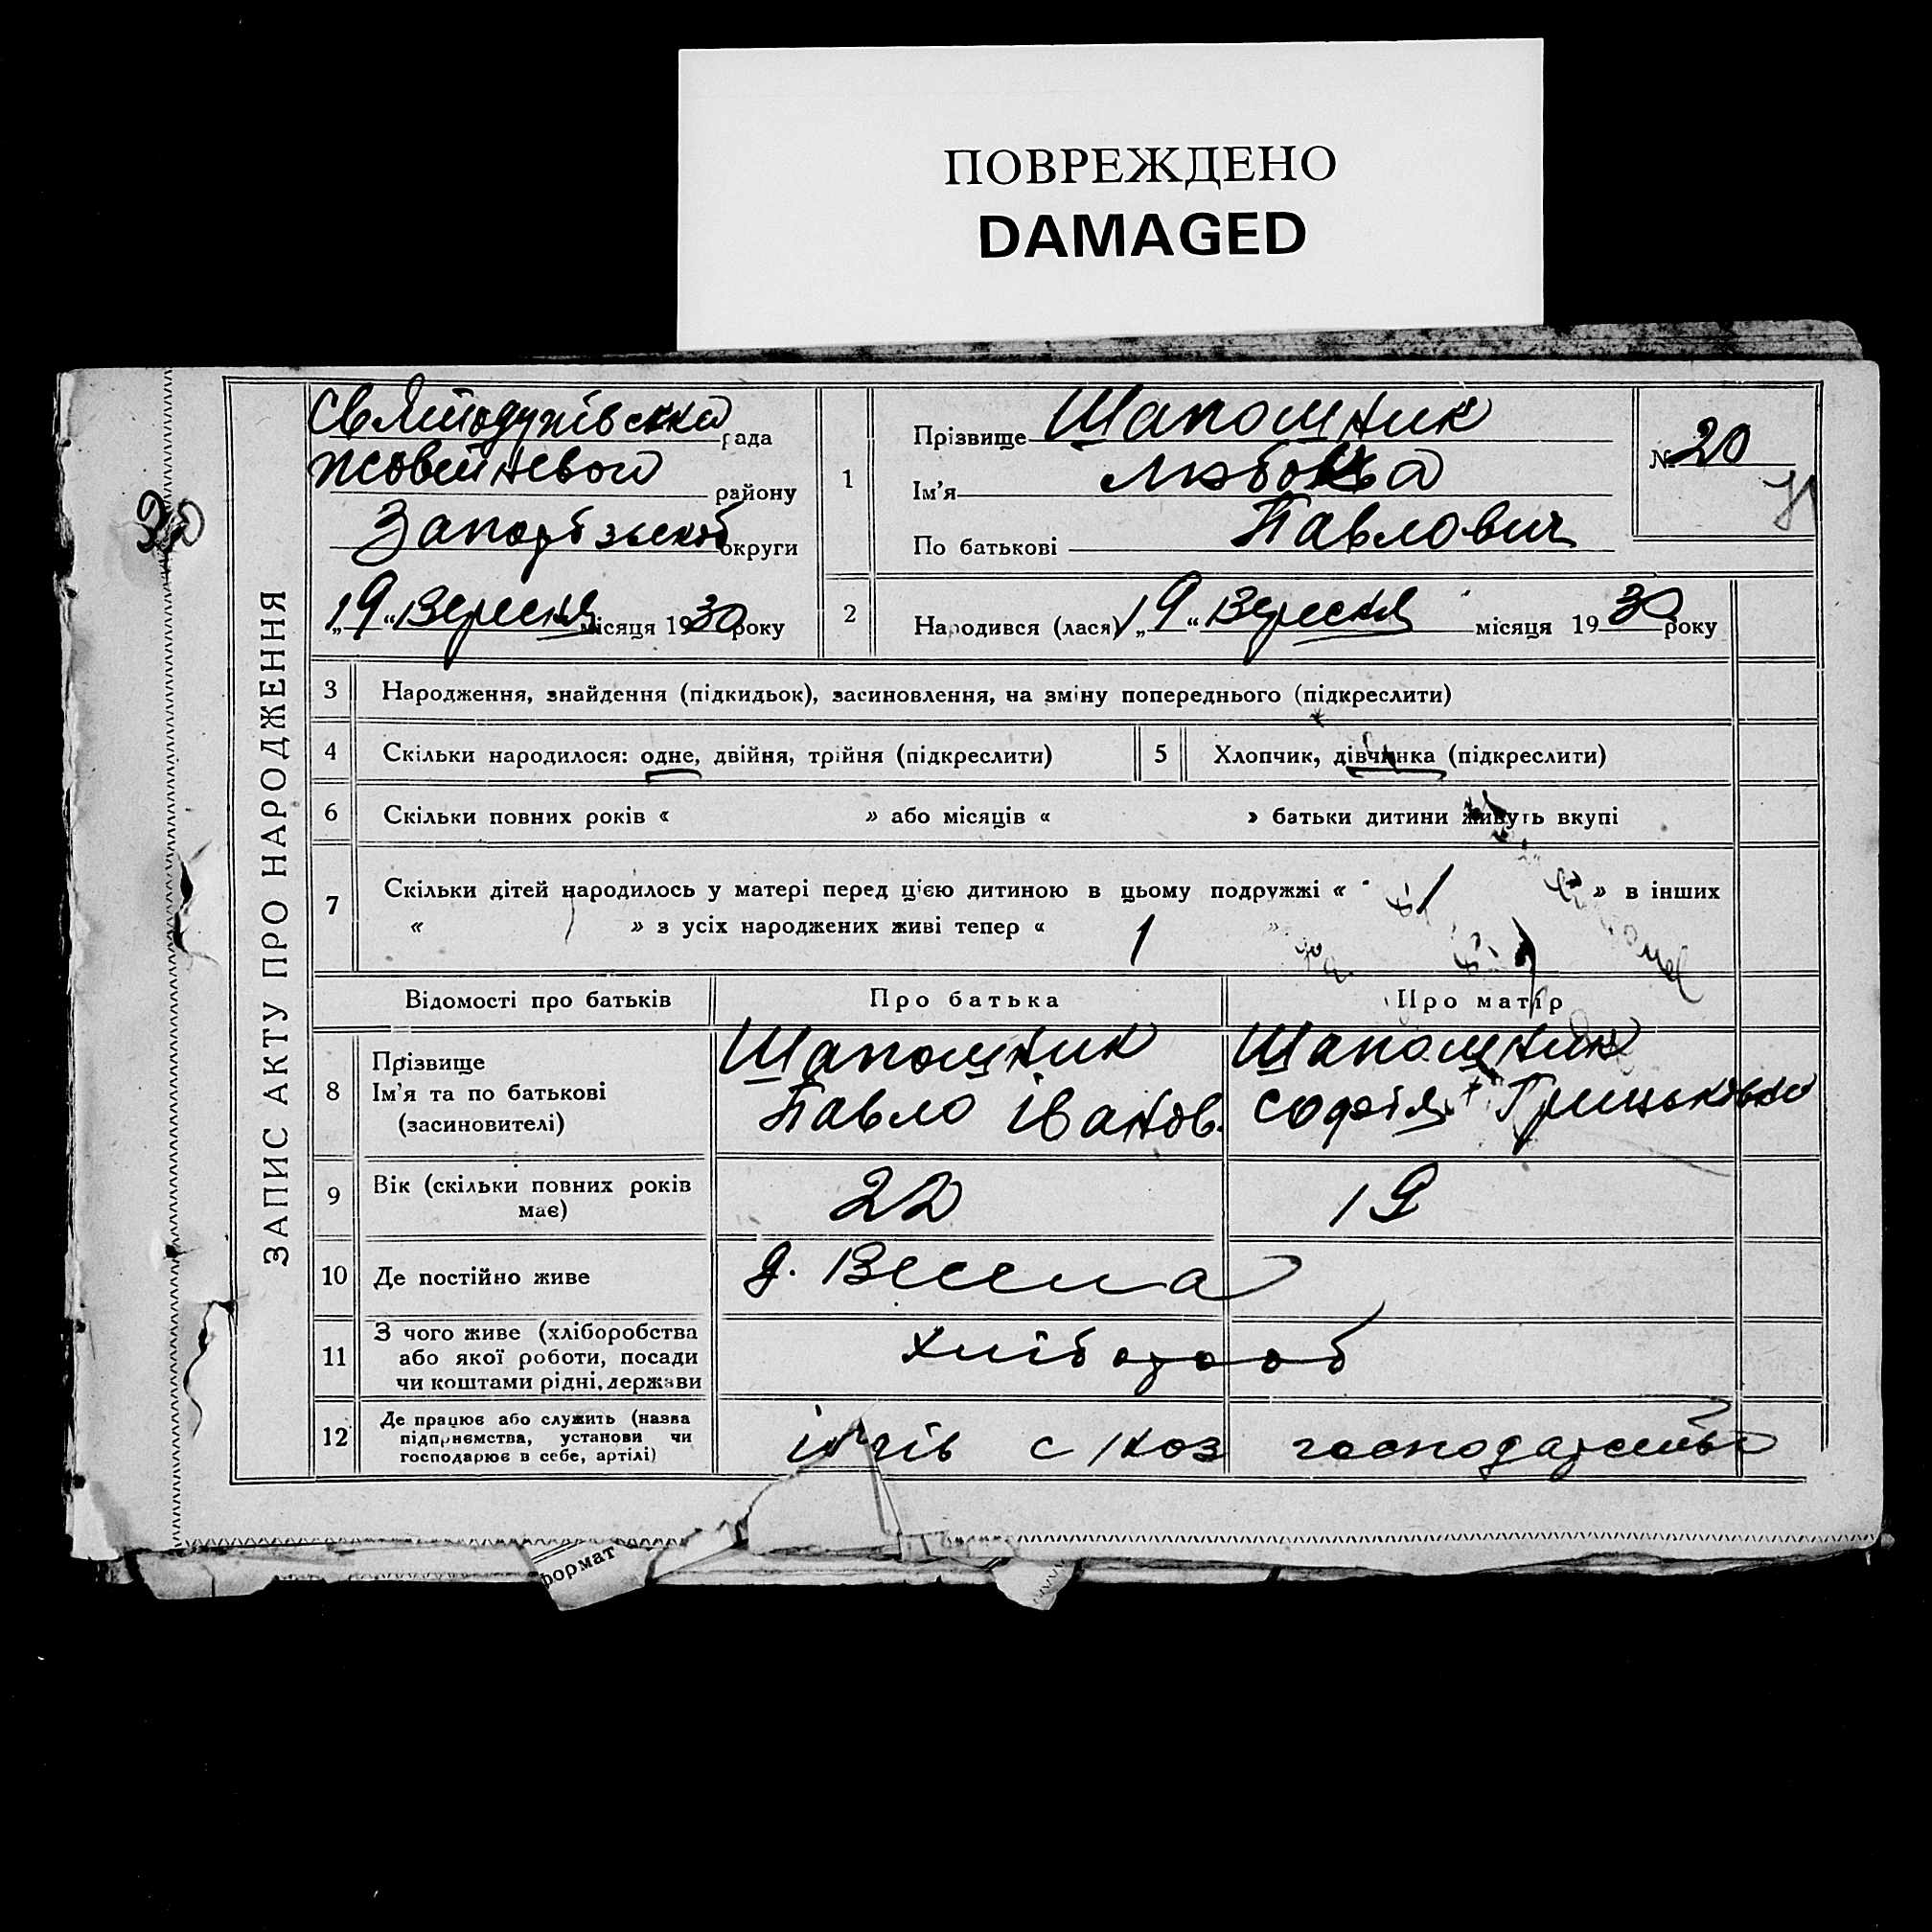 ПОВРЕЖДЕНО
DAMAGED
ЗАПИС АКТУ ПРО НАРОДЖЕННЯ
30
Святодухівська рада
Жовтневого району
Запорізської округи
„19“ Вересня місяця 1930 року
1
Прізвище Шапошник
Ім’я Любовьа
По батькові Павлович
№ 20
2
Народився (лася) „19“ Вересня місяця 1930 року
3 Народження, знайдення (підкидьок), засиновлення, на зміну попереднього (підкреслити)
4 Скільки народилося: одне, двійня, трійня (підкреслити)
5 Хлопчик, дівчинка (підкреслити)
6 Скільки повних років « » або місяців « » батьки дитини живуть вкупі
7 Скільки дітей народилось у матері перед цією дитиною в цьому подружжі « 1 » в інших
« » з усіх народжених живі тепер « 1 »
Відомості про батьків Про батька Про матір
8 Прізвище
Ім’я та по батькові
(засиновителі)
Шапошник
Павло Іванов.
Шапошник
Софія Грицьківна
9 Вік (скільки повних років
має)
22 19
10 Де постійно живе д. Весела
11 З чого живе (хліборобства
або якої роботи, посади
чи коштами рідні, держави
Хлібороб
12 Де працює або служить (назва
підприємства, установи чи
господарює в себе, артілі)
с /хоз господарство
формат